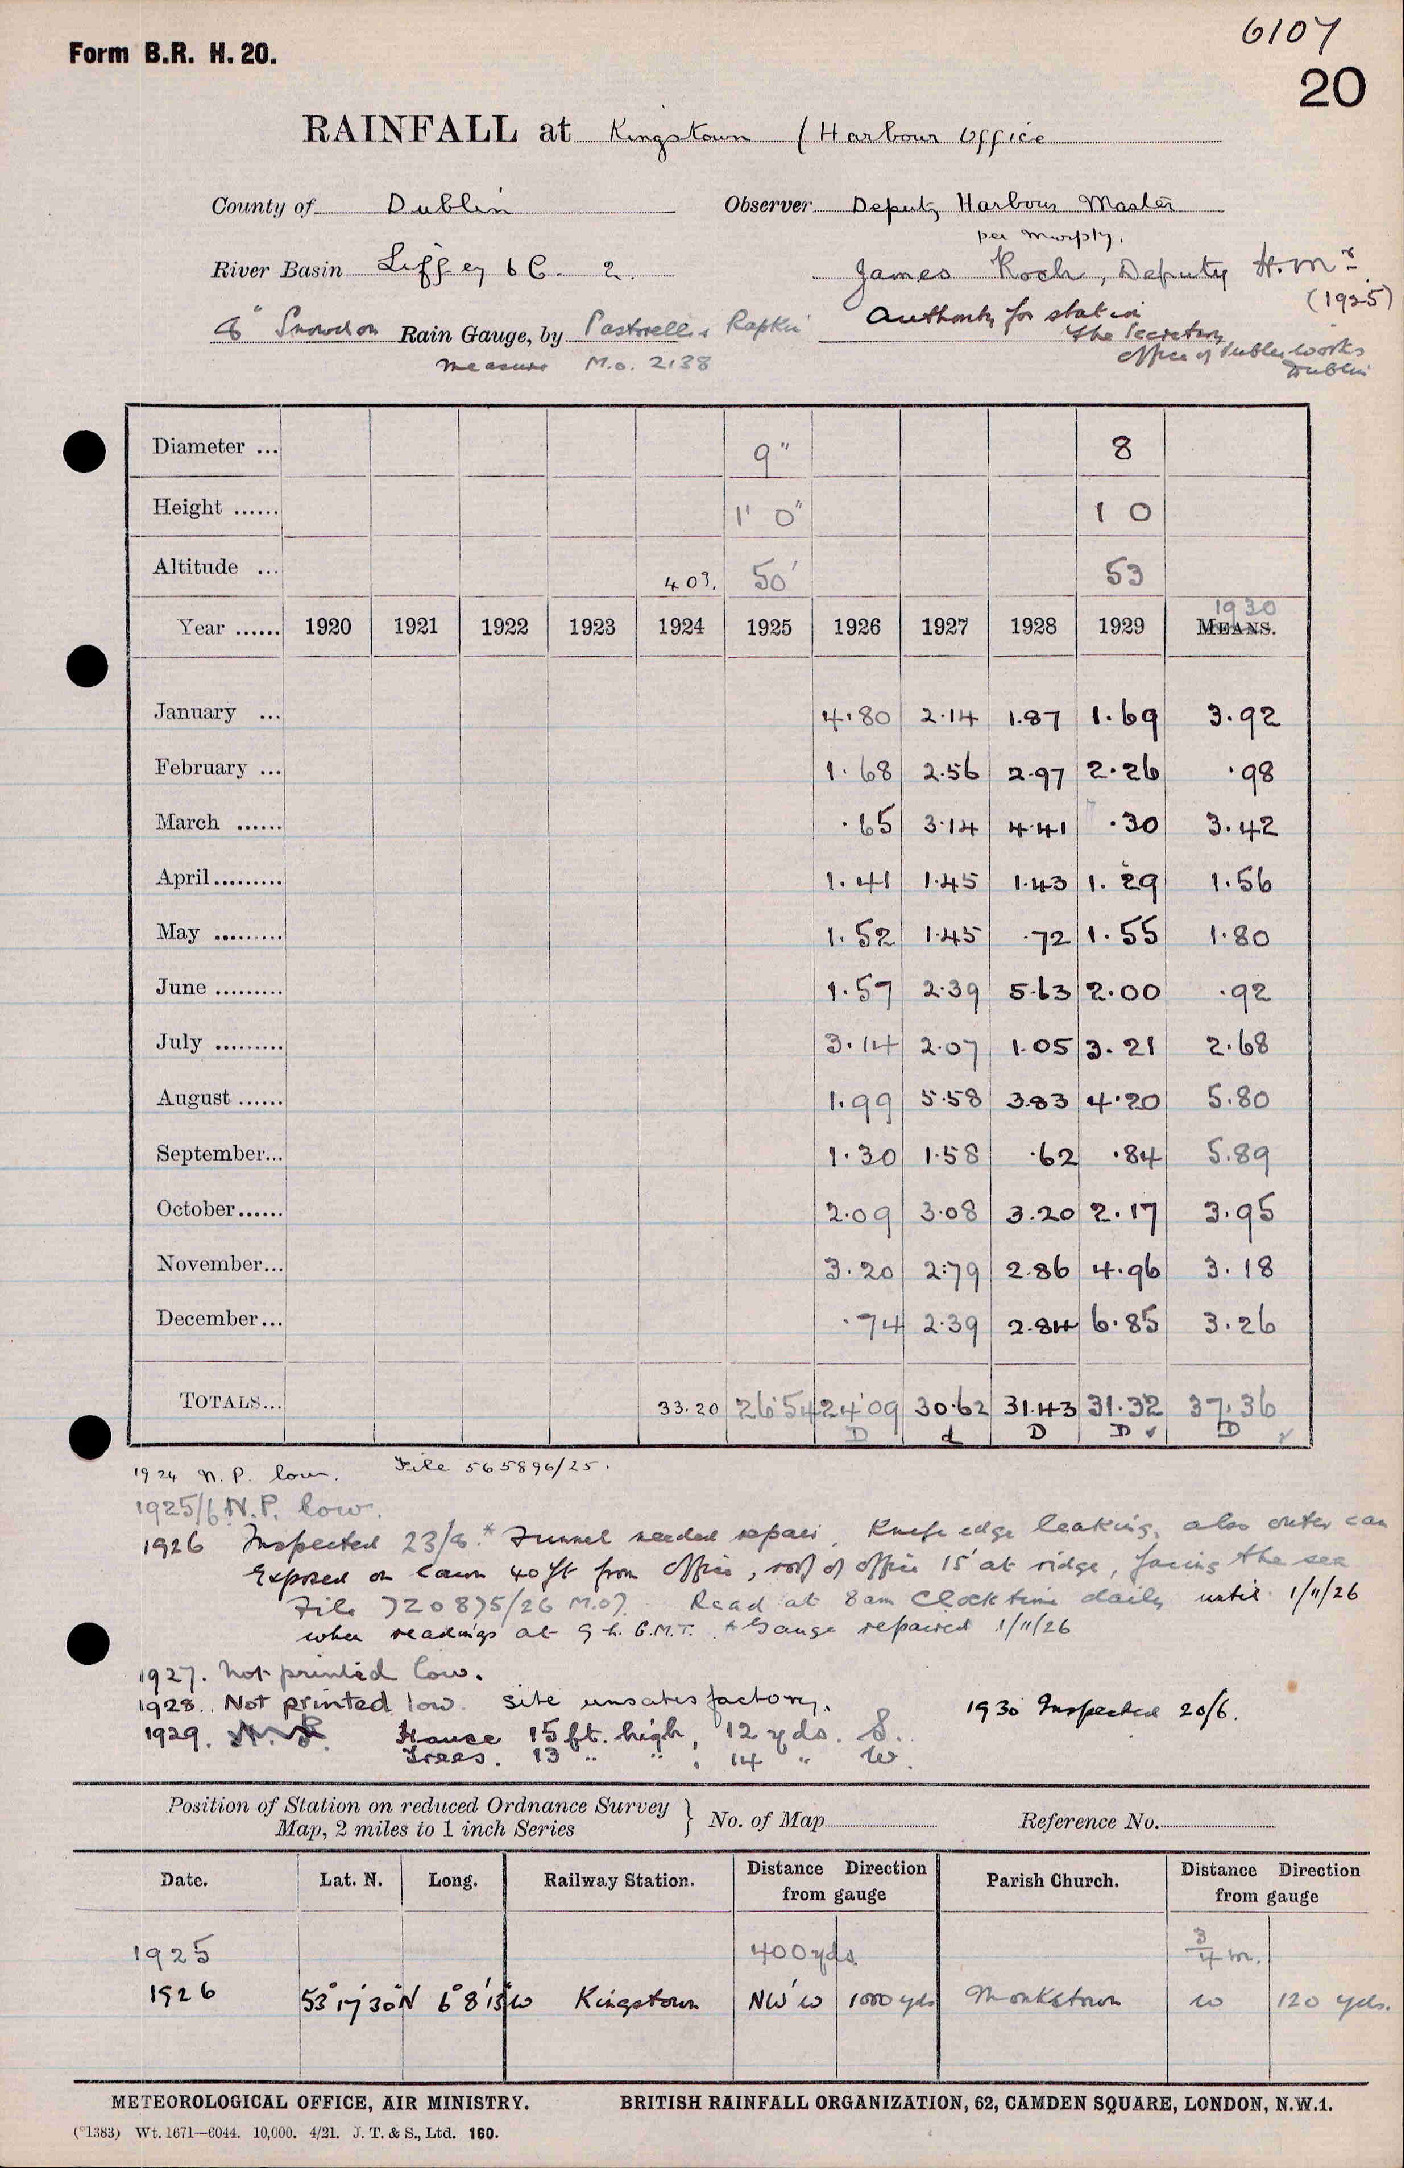 6107
Form B.R. H. 20.
20
RAINFALL at Kingstown (Harbour Office
County of Dublin Observer Deputy Harbour Master
per Murphy.
River Basin Liffey 6 C. 2. James Roch, Deputy H. Mr
(1925)
8" Snowdon Rain Gauge, by Pastorelli & Rapkin Authority for station
The Secretary
measure M.O. 2138 Office of Public Works
Dublin
Diameter ... 9" 8
Height ...... 1' 0" 1 0
Altitude ... 403. 50' 53
1930
Year ...... 1920 1921 1922 1923 1924 1925 1926 1927 1928 1929 MEANS.
January ... 4.80 2.14 1.87 1.69 3.92
February ... 1.68 2.56 2.97 2.26 .98
March ...... .65 3.14 4.41 .30 3.42
April......... 1.41 1.45 1.43 1.29 1.56
May ......... 1.52 1.45 .72 1.55 1.80
June ......... 1.57 2.39 5.63 2.00 .92
July ......... 3.14 2.07 1.05 3.21 2.68
August ...... 1.99 5.58 3.83 4.20 5.80
September... 1.30 1.58 .62 .84 5.89
October...... 2.09 3.08 3.20 2.17 3.95
November... 3.20 2.79 2.86 4.96 3.18
December... .74 2.39 2.84 6.85 3.26
TOTALS... 33.20 26.54 24.09 30.62 31.43 31.32 37.36
D d D D D
1924 N.P. low. File 565896/25.
1925/6 N.P. low.
1926 Inspected 23/8.* Funnel needed repair Knife edge leaking, also outer can
Exposed on lawn 40ft from office, roof of office 15' at ridge, facing the sea
File 720875/26 M.O7. Read at 8am Clock time daily until 1/11/26
when readings at 9 h. G.M.T. * Gauge repaired 1/11/26
1927. Not printed low.
1928. Not printed low. site unsatisfactory. 1930 Inspected 20/6.
1929. N.P. House 15 ft. high, 12 yds. S.
Trees. 13 " " , 14 " W.
Position of Station on reduced Ordnance Survey
Map, 2 miles to 1 inch Series } No. of Map Reference No.
Date. Lat. N. Long. Railway Station. Distance Direction from gauge Parish Church. Distance Direction from gauge
1925 400 yds 3/4 m.
1926 53° 17' 30" N 6° 8' 15" W Kingstown NW'W 1000 yds Monkstown W 120 yds.
METEOROLOGICAL OFFICE, AIR MINISTRY. BRITISH RAINFALL ORGANIZATION, 62, CAMDEN SQUARE, LONDON, N.W.1.
(*1383) Wt. 1671—6044. 10,000. 4/21. J. T. & S., Ltd. 160.